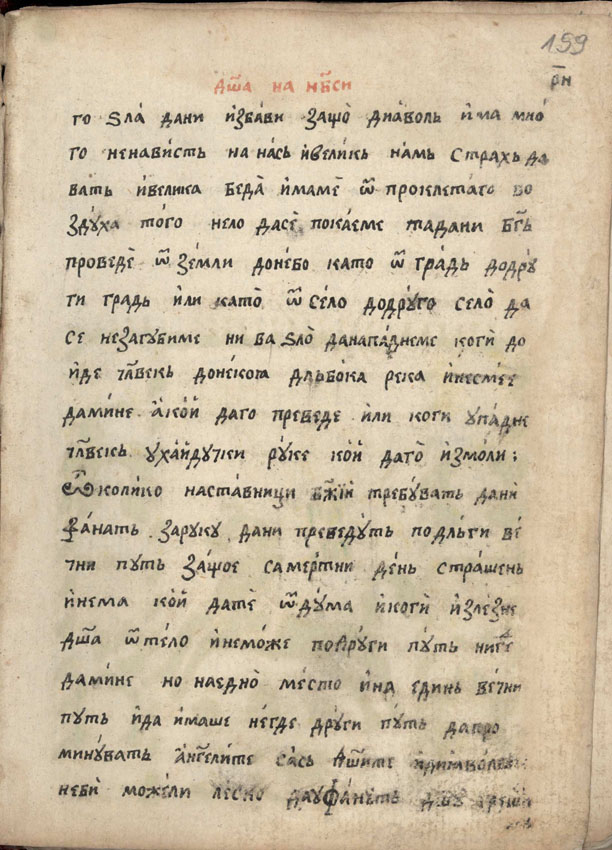 159
рн҃
Дш҃а на нб҃си
го ѕла̀ дани и҆зба́ви защо̀ дїа́воль и҆ма мно́
го ненави́сть на на́сь и҆вели́кь на́мь стра́хь да
ва́ть и҆вели́ка беда̀ и҆ма́ме ѿ прокле́таго во
зду́ха то́го нело дасѐ пока́еме тада́ни бг҃ь
проведѐ ѿ земли доне́бо като ѿ гра́дь додру́
ги градь и҆ли като̀ ѿ се́ло додру́го село̀ да
се незагу́биме ни ва ѕло̀ данапа́днеме коги̇ до
и҆́де чл҃векь доне́коѧ дльбо́ка река и҆несме́е
дами́не а҆ко́й даго преведе и҆ли коги упа́дне
чл҃векь ухайду́чки ру́ке ко́й даго̀ и҆змо́ли :
Ѿко́лико наста́вници бж҃їи тре́бувать дани̇
фа́нать зару́ку дани преведу́ть по дль́ги ве́
чни путь защо́е саме́ртни де́нь стра́шень
и҆не́ма ко́й дате̇ ѿду́ма и҆коги̇ и҆зле́зне
дш҃а ѿ те́ло и҆немо́же по дру́ги пу́ть ниг҆де
дами́не но наедно̀ ме́сто и҆на еди́нь ве́чни
путь и҆да и҆маше не́где дру́ги путь дапро
мину́вать а҆́нг҃елите са́сь дш҃и́те
неби̇ може́ли ле́сно дауфа́нуть